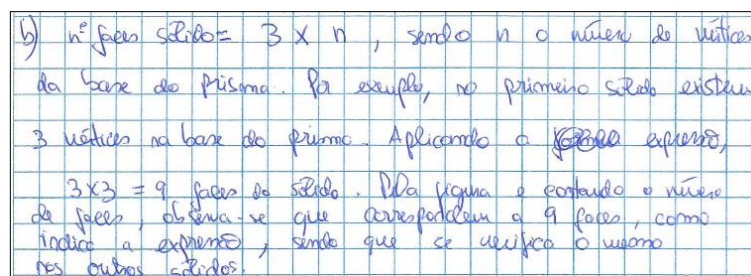 b) nº faces sólido = 3 x n, sendo n o número de vértices
da base do prisma. Por exemplo, no primeiro sólido existem
3 vértices na base do prisma. Aplicando a expressão,
3x3 = 9 faces do sólido. Da figura e contando o número
de faces, observa-se que correspondem a 9 faces, como
indica a expressão, sendo que se verifica o mesmo
nos outros sólidos.